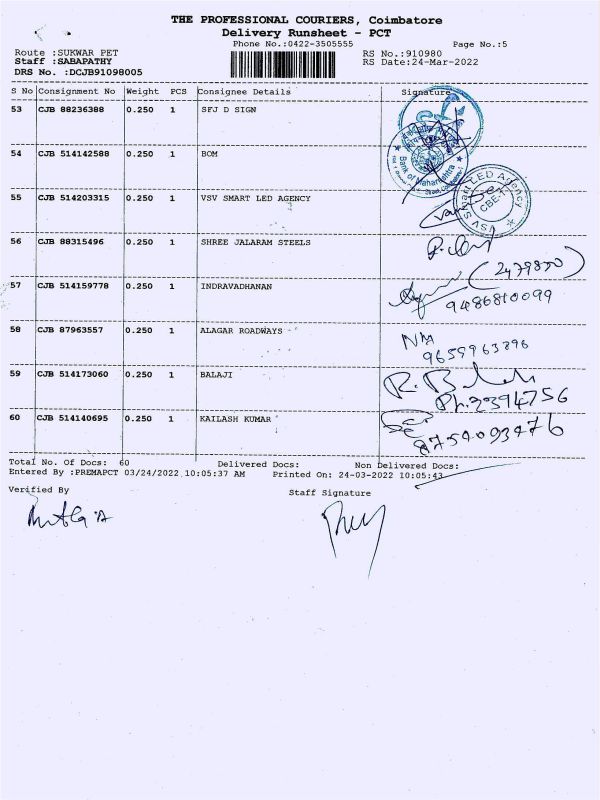 THE PROFESSIONAL COURIERS, Coimbatore
Delivery Runsheet - PCT
Phone No.:0422-3505555 Page No.:5
Route :SUKWAR PET RS No.:910980
Staff :SABAPATHY RS Date:24-Mar-2022
DRS No. :DCJB91098005
S No Consignment No Weight PCS Consignee Details Signature
53 CJB 88236388 0.250 1 SFJ D SIGN
54 CJB 514142588 0.250 1 BOM
Bank of Maharashtra
55 CJB 514203315 0.250 1 VSV SMART LED AGENCY
VSV Smart LED Agency
CBE-1
56 CJB 88315496 0.250 1 SHREE JALARAM STEELS
(2479850)
57 CJB 514159778 0.250 1 INDRAVADHANAN
9486810099
58 CJB 87963557 0.250 1 ALAGAR ROADWAYS
9659963896
59 CJB 514173060 0.250 1 BALAJI
Ph.2394756
60 CJB 514140695 0.250 1 KAILASH KUMAR
8754093476
Total No. Of Docs: 60 Delivered Docs: Non Delivered Docs:
Entered By :PREMAPCT 03/24/2022 10:05:37 AM Printed On: 24-03-2022 10:05:43
Verified By Staff Signature